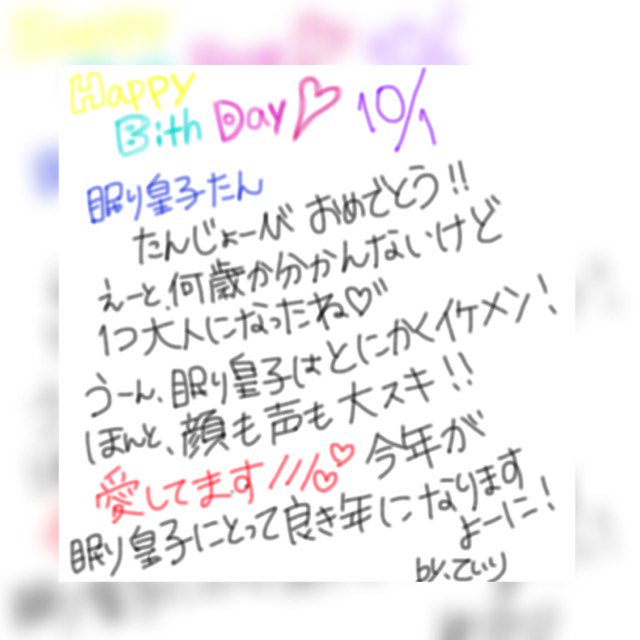 Happy
Bith Day♡ 10/1
眠り皇子たん
たんじょーび おめでとう!!
えーと、何歳か分かんないけど
1つ大人になったね♡
うーん、眠り皇子はとにかくイケメン!
ほんと、顔も声も大スキ!!
愛してます///♡♡ 今年が
眠り皇子にとって良き年になります
よーに!
by.てぃり